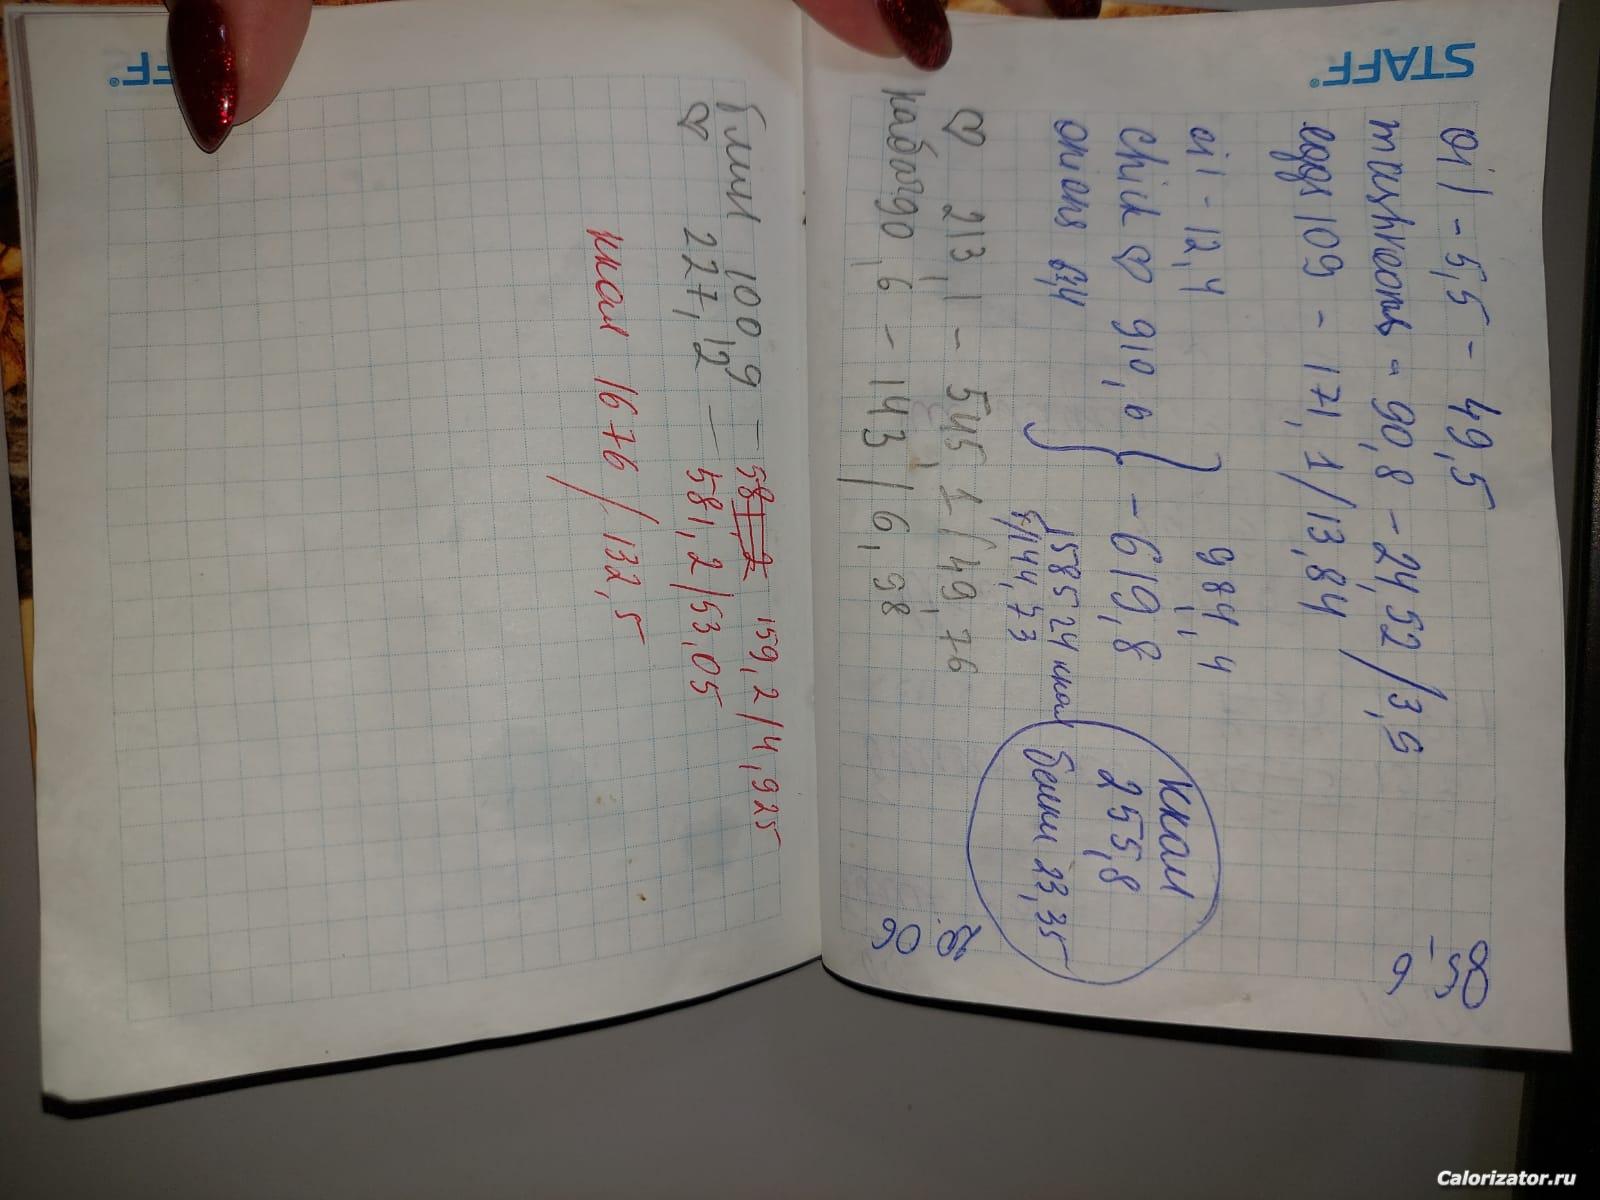 STAFF®
oil - 5,5 - 49,5
mashrooms - 90,8 - 24,52/3,9
eggs 109 - 171,1/13,84
oil - 12,4 984,4
chick ♡ 910,6 - 619,8
onions
1585 24 ккал
144,73
ккал
255,8
белки 23,35
♡ 213,1 - 545,1/49,76
90,6 - 143/6,98
06
блин 100,9 - 159,2/4,925
♡ 227,12 - 581,2/53,05
ккал 1676/132,5
Calorizator.ru